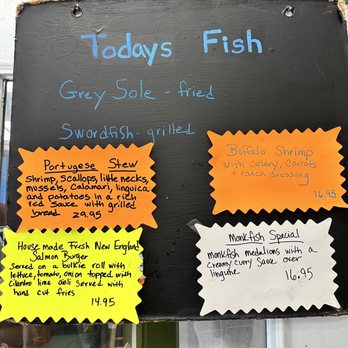 Todays Fish
Grey Sole - fried
Swordfish - grilled
Portugese Stew
Shrimp, Scallops, little necks,
mussels, Calamari, linguica
and potatoes in a rich
red Sauce with grilled
bread 29.95
Buffalo Shrimp
with celery, Carrots
+ ranch dressing
16.95
House made Fresh New England
Salmon Burger
Served on a bulkie roll with
lettuce, tomato, onion topped with
Cilantro lime aioli served with
hand cut fries
14.95
Monkfish Special
Monkfish medalions with a
Cream/Curry Sauce over
linguine
16.95